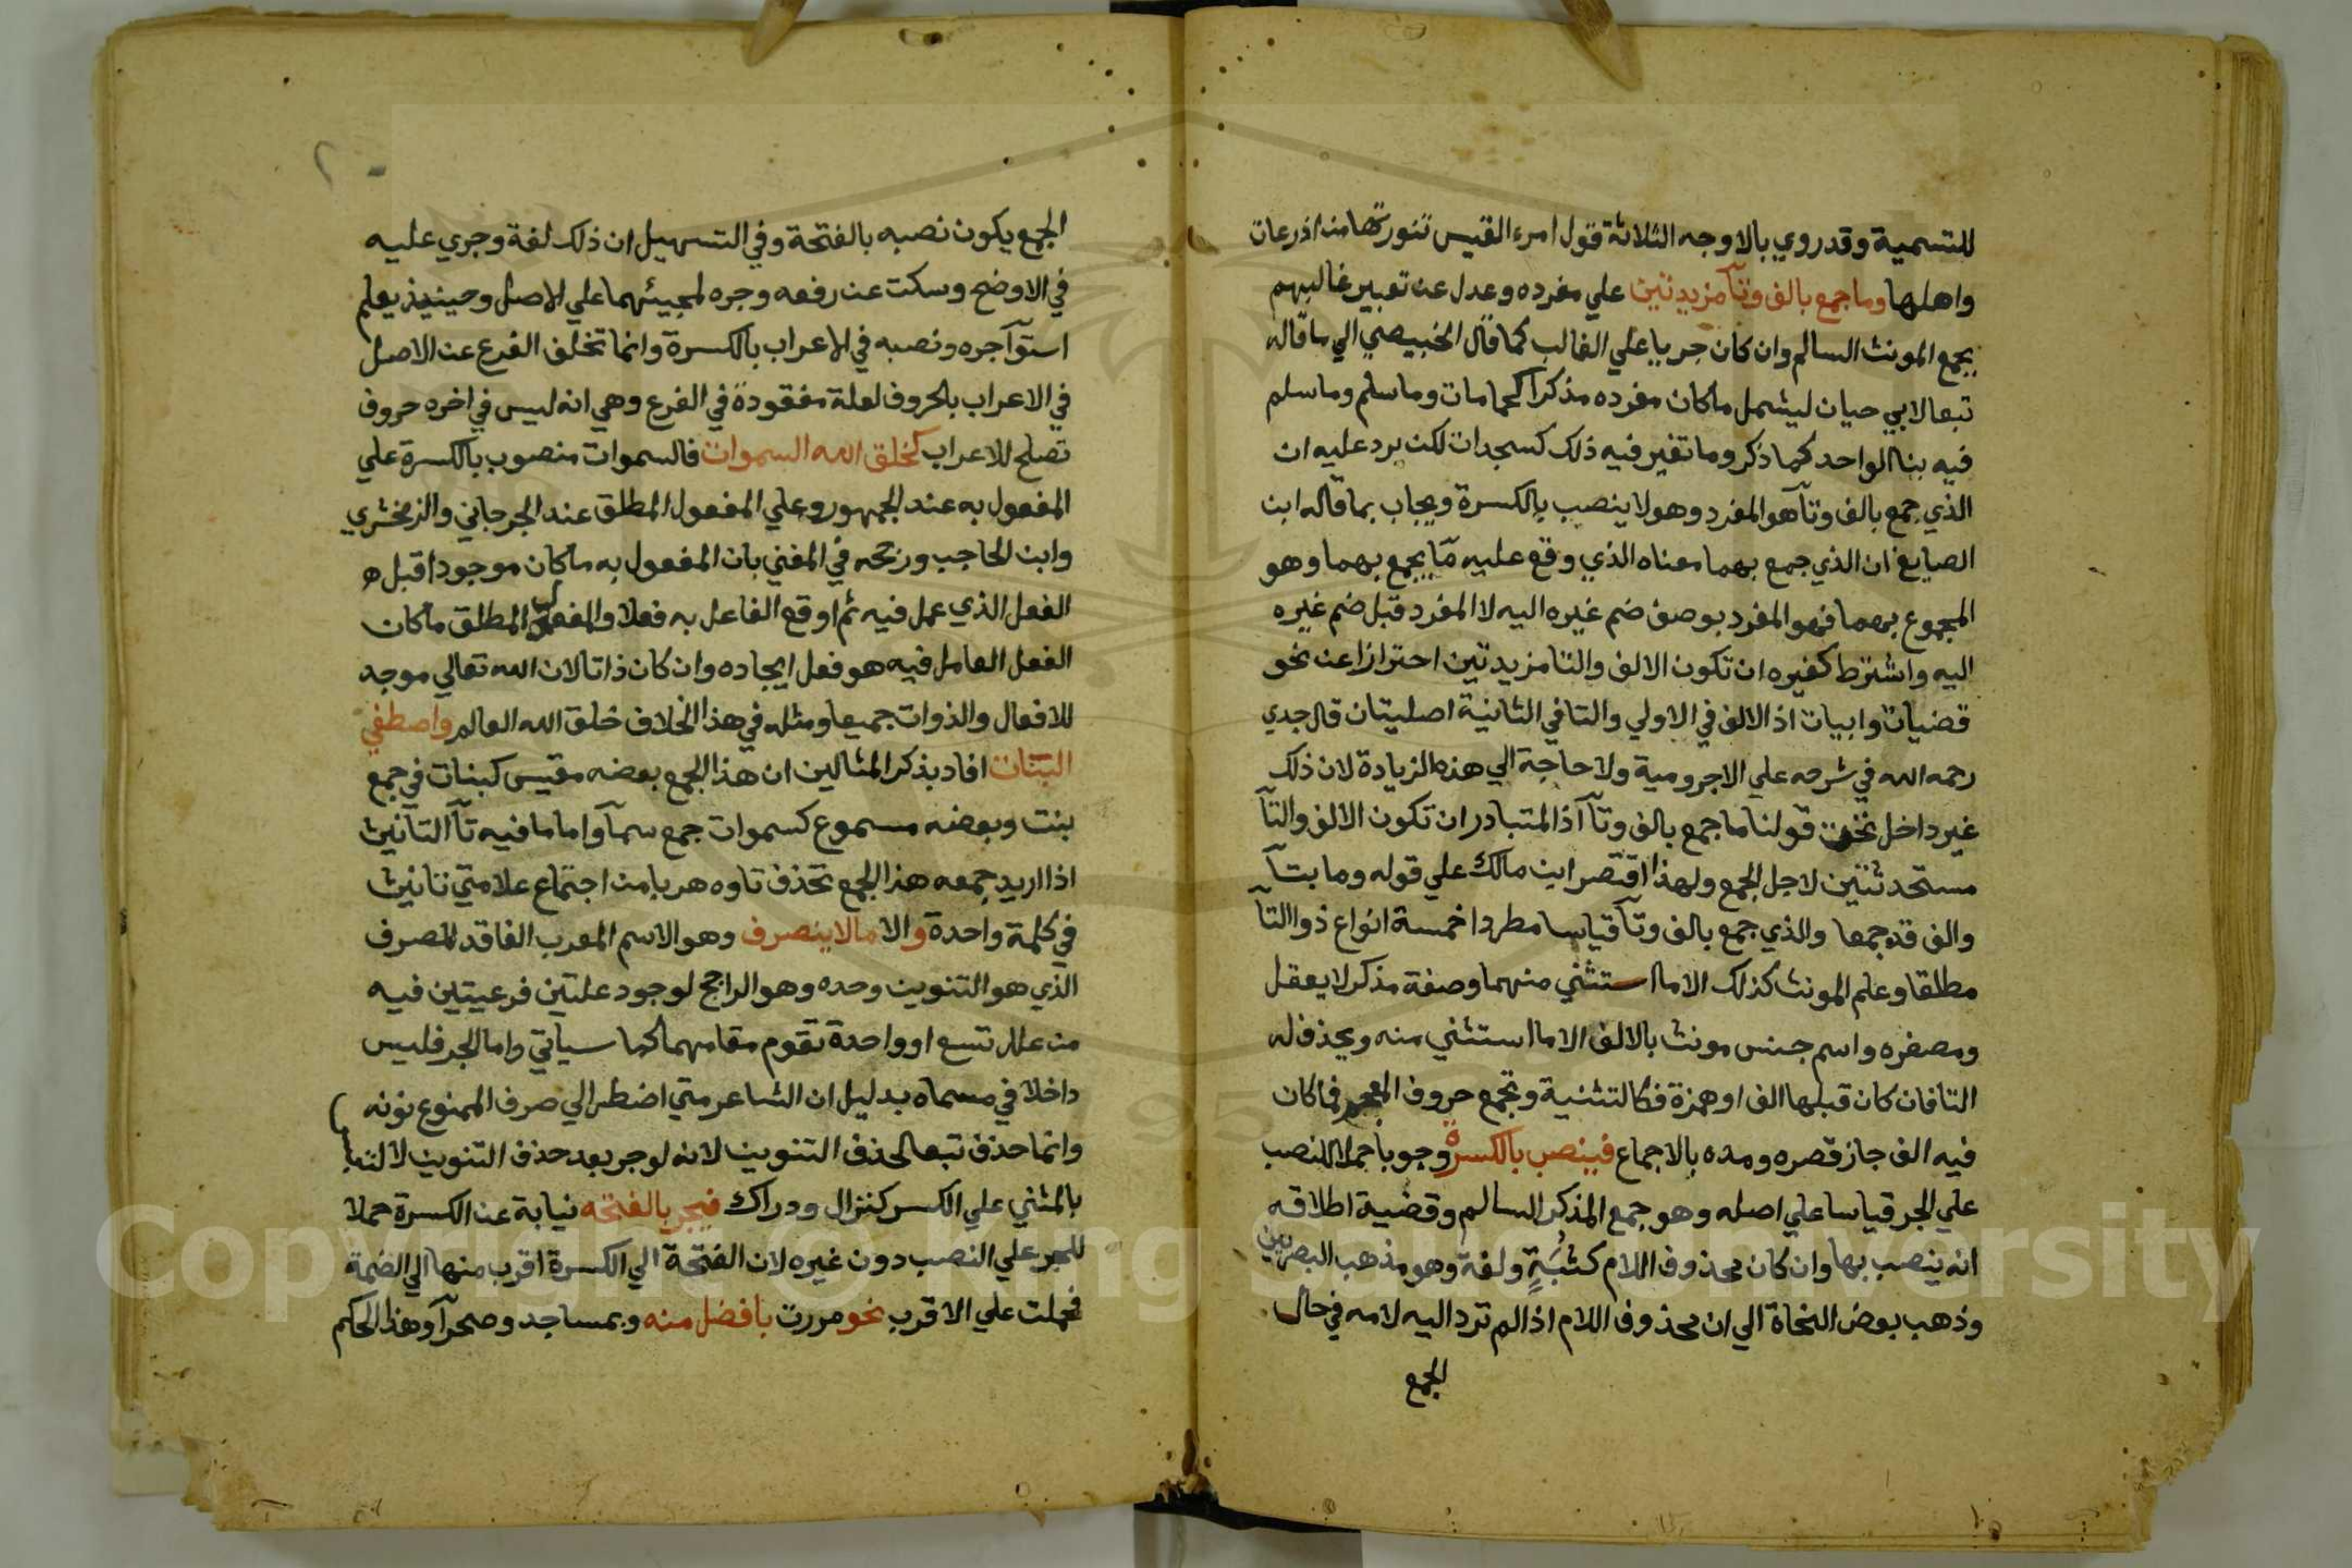 للتسمية وقد روي بالاوجه الثلاثة قول امرء القيس تنورتها من اذرعات
واهلها وما جمع بالف وتآ مزيدتين علي مفرده وعدل عن تعبير غالبهم
بجمع المونث السالم وان كان جريا علي الغالب كما قال الخبيصي الي ما قاله
تبعا لابي حيان ليشمل ما كان مفرده مذكرا كحمامات وما سلم وما سلم
فيه بنا الواحد كما ذكر وما تغير فيه ذلك كسجدات لكن يرد عليه ان
الذي جمع بالف وتآ هو المفرد وهو لا ينصب بالكسرة ويجاب بما قاله ابن
الصايغ ان الذي جمع بهما معناه الذي وقع عليه ما يجمع بهما وهو
المجموع بهما فهو المفرد بوصف ضم غيره اليه لا المفرد قبل ضم غيره
اليه واشترط كغيره ان تكون الالف والتا مزيدتين احترازا عن نحو
قضيات وابيات اذ الالف في الاولي والتا في الثانية اصليتان قال جدي
رحمه الله في شرحه علي الاجرومية ولا حاجة الي هذه الزيادة لان ذلك
غير داخل تحت قولنا ما جمع بالف وتآ اذ المتبادر ان تكون الالف والتآ
مستحدثتين لاجل الجمع ولهذا اقتصر ابن مالك علي قوله وما بتآ
والف قد جمعا والذي جمع بالف وتآ قياسا مطردا خمسة انواع ذو التآ
مطلقا وعلم المونث كذلك الا ما استثني منهما وصفة مذكر لا يعقل
ومصغره واسم جنس مونث بالالف الا ما استثني منه ويحذف له
التا فان كان قبلها الف او همزة فكالتثنية وتجمع حروف المعجم فما كان
فيه الف جاز قصره ومده بالاجماع فينصب بالكسرة وجوبا حملا للنصب
علي الجر قياسا علي اصله وهو جمع المذكر السالم وقضية اطلاقه
انه ينصب بها وان كان محذوف اللام كثبة ولغة وهو مذهب البصريين
وذهب بعض النحاة الي ان محذوف اللام اذا لم ترد اليه لامه في حال
الجمع
الجمع يكون نصبه بالفتحة وفي التسهيل ان ذلك لغة وجري عليه
في الاوضح وسكت عن رفعه وجره لمجيئهما علي الاصل وحينيذ يعلم
استوآ جره ونصبه في الاعراب بالكسرة وانما تخلف الفرع عن الاصل
في الاعراب بالحروف لعلة مفقودة في الفرع وهي انه ليس في اخره حروف
تصلح للاعراب كخلق الله السموات فالسموات منصوب بالكسرة علي
المفعول به عند الجمهور وعلي المفعول المطلق عند الجرجاني والزمخشري
وابن الحاجب ورجحه في المغني بان المفعول به ما كان موجودا قبل ه
الفعل الذي عمل فيه ثم اوقع الفاعل به فعلا والمفعول المطلق ما كان
الفعل العامل فيه هو فعل ايجاده وان كان ذاتا لان الله تعالي موجد
للافعال والذوات جميعا ومثله في هذا الخلاف خلق الله العالم واصطفي
البنات افاد بذكر المثالين ان هذا الجمع بعضه مقيس كبنات في جمع
بنت وبعضه مسموع كسموات جمع سمآ واما ما فيه تآ التانيث
اذا اريد جمعه هذا الجمع تحذف تاوه هربا من اجتماع علامتي تانيث
في كلمة واحدة والا ما لا ينصرف وهو الاسم المعرب الفاقد للصرف
الذي هو التنوين وحده وهو الراجح لوجود علتين فرعيتين فيه
من علل تسع او واحدة تقوم مقامهما كما سياتي واما الجر فليس
داخلا في مسماه بدليل ان الشاعر متي اضطر الي صرف الممنوع نونه
وانما حذف تبعا لحذف التنوين لانه لو جر بعد حذف التنوين لالتبس
بالمثني علي الكسر كنزال ودراك فيجر بالفتحه نيابة عن الكسرة حملا
للجر علي النصب دون غيره لان الفتحة الي الكسرة اقرب منها الي الضمة
فحملت علي الاقرب نحو مررت بافضل منه وبمساجد وصحرآ وهذا الحكم
Copyright © King Saud University